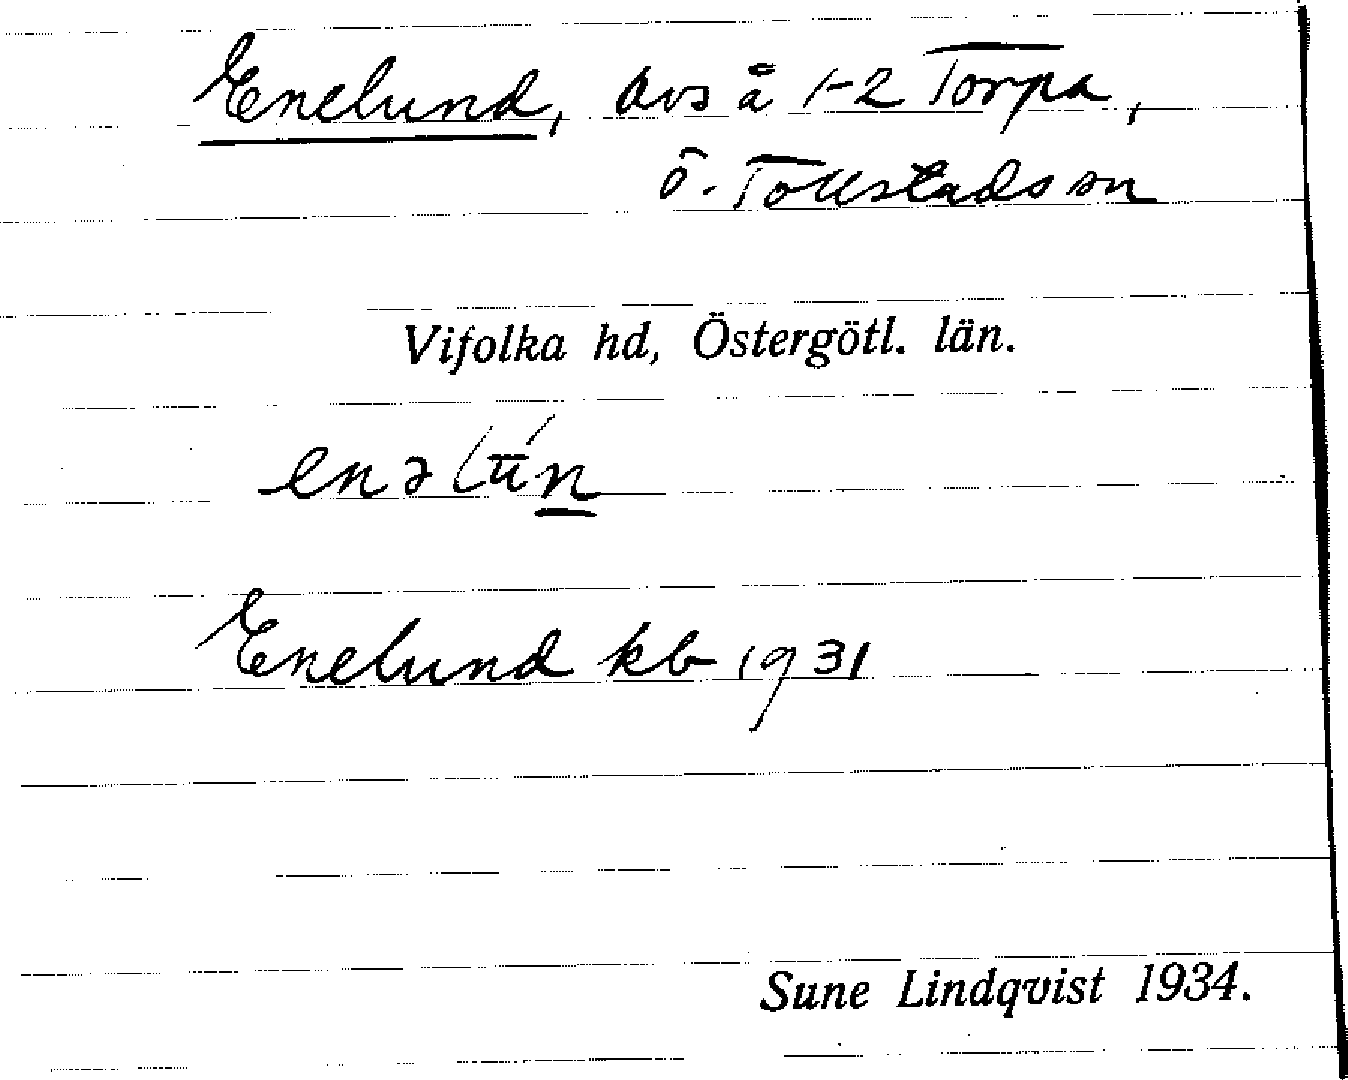 Enelund, avs å 1-2 Torpa,
Ö. Tollstads sn
Vifolka hd, Östergötl. län.
Enelund kb 1931
Sune Lindqvist 1934.